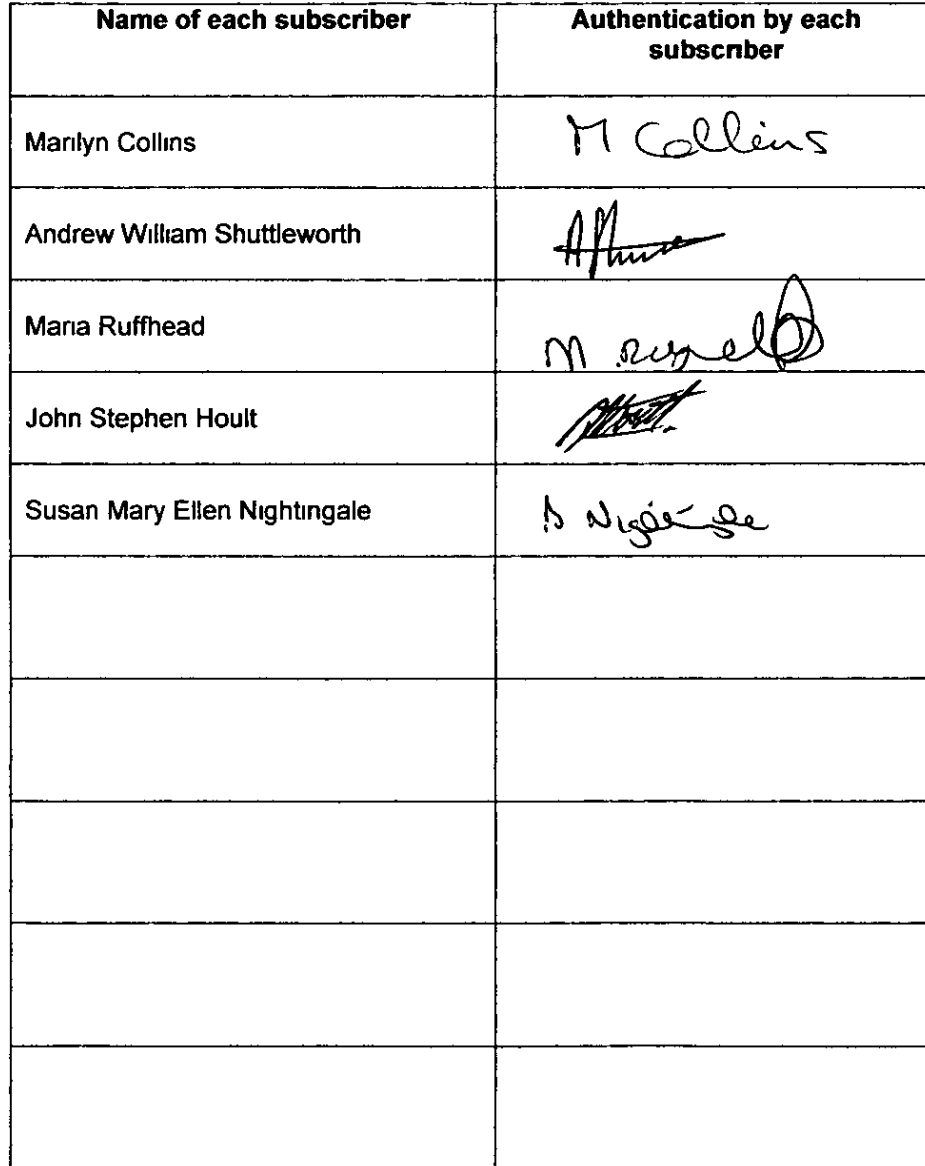 Name of each subscriber
Authentication by each
subscriber
Marilyn Collins
M Collins
Andrew William Shuttleworth
Maria Ruffhead
M
John Stephen Hoult
Susan Mary Ellen Nightingale
S Nightingale